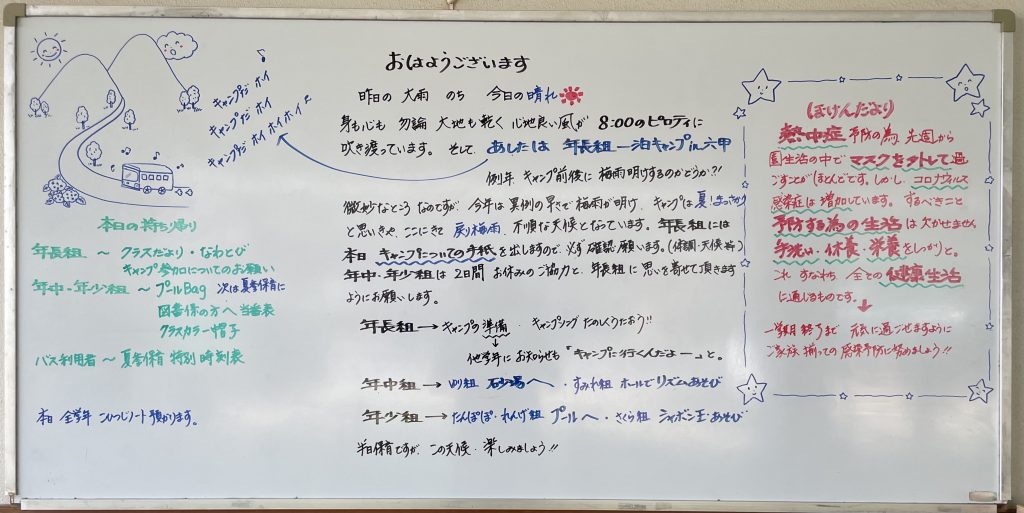 おはようございます
昨日の 大雨 のち 今日の晴れ
身も心も 勿論 大地も乾く 心地良い風が 8:00のピロティに
吹き渡っています。そして、あしたは 年長組 一泊キャンプ in 六甲
例年 キャンプ前後に 梅雨明けするのかどうか?!
微妙なところ なのですが、今年は 異例の早さで 梅雨が明け、キャンプは 夏!まっさかり
と思いきや、ここにきて 戻り梅雨、不順な天候となっています。年長組には
本日 キャンプについての手紙を出しますので、必ず確認願います。(体調・天候等)
年中・年少組は 2日間 お休みのご協力と、年長組に 思いを寄せて頂きます
ようにお願いします。
年長組→キャンプの準備・キャンプソング たのしくうたおう!!
他学年に お知らせも「キャンプに行くんだよー」と。
年中組→ゆり組 砂場へ・すみれ組 ホールでリズムあそび
年少組→たんぽぽ・れんげ組 プールへ・さくら組 シャボン玉あそび
半日保育ですが、この天候・楽しみましょう!!
キャンプだ ホイ
キャンプだ ホイ
キャンプだ ホイ ホイ ホイ
本日の持ち帰り
年長組 ～ クラスだより・なわとび
キャンプ参加についてのお願い
年中・年少組～プールBag 次は夏季保育に
図書係の方へ 当番表
クラスカラー帽子
バス利用者 ～ 夏季保育 特別 時刻表
本日 全学年 こひつじノート預かります。
ほけんだより
熱中症 予防の為、先週から
園生活の中で マスクを外して過
ごすことがほとんどです。しかし、コロナウィルス
感染症は 増加しています。するべきこと
予防する為の生活は欠かせません
手洗い・休養・栄養をしっかりと。
これ すなわち 全ての 健康生活
に通じるものです。
一学期 終了まで 元気に過ごせますように
ご家族 揃っての 感染予防に努めましょう!!